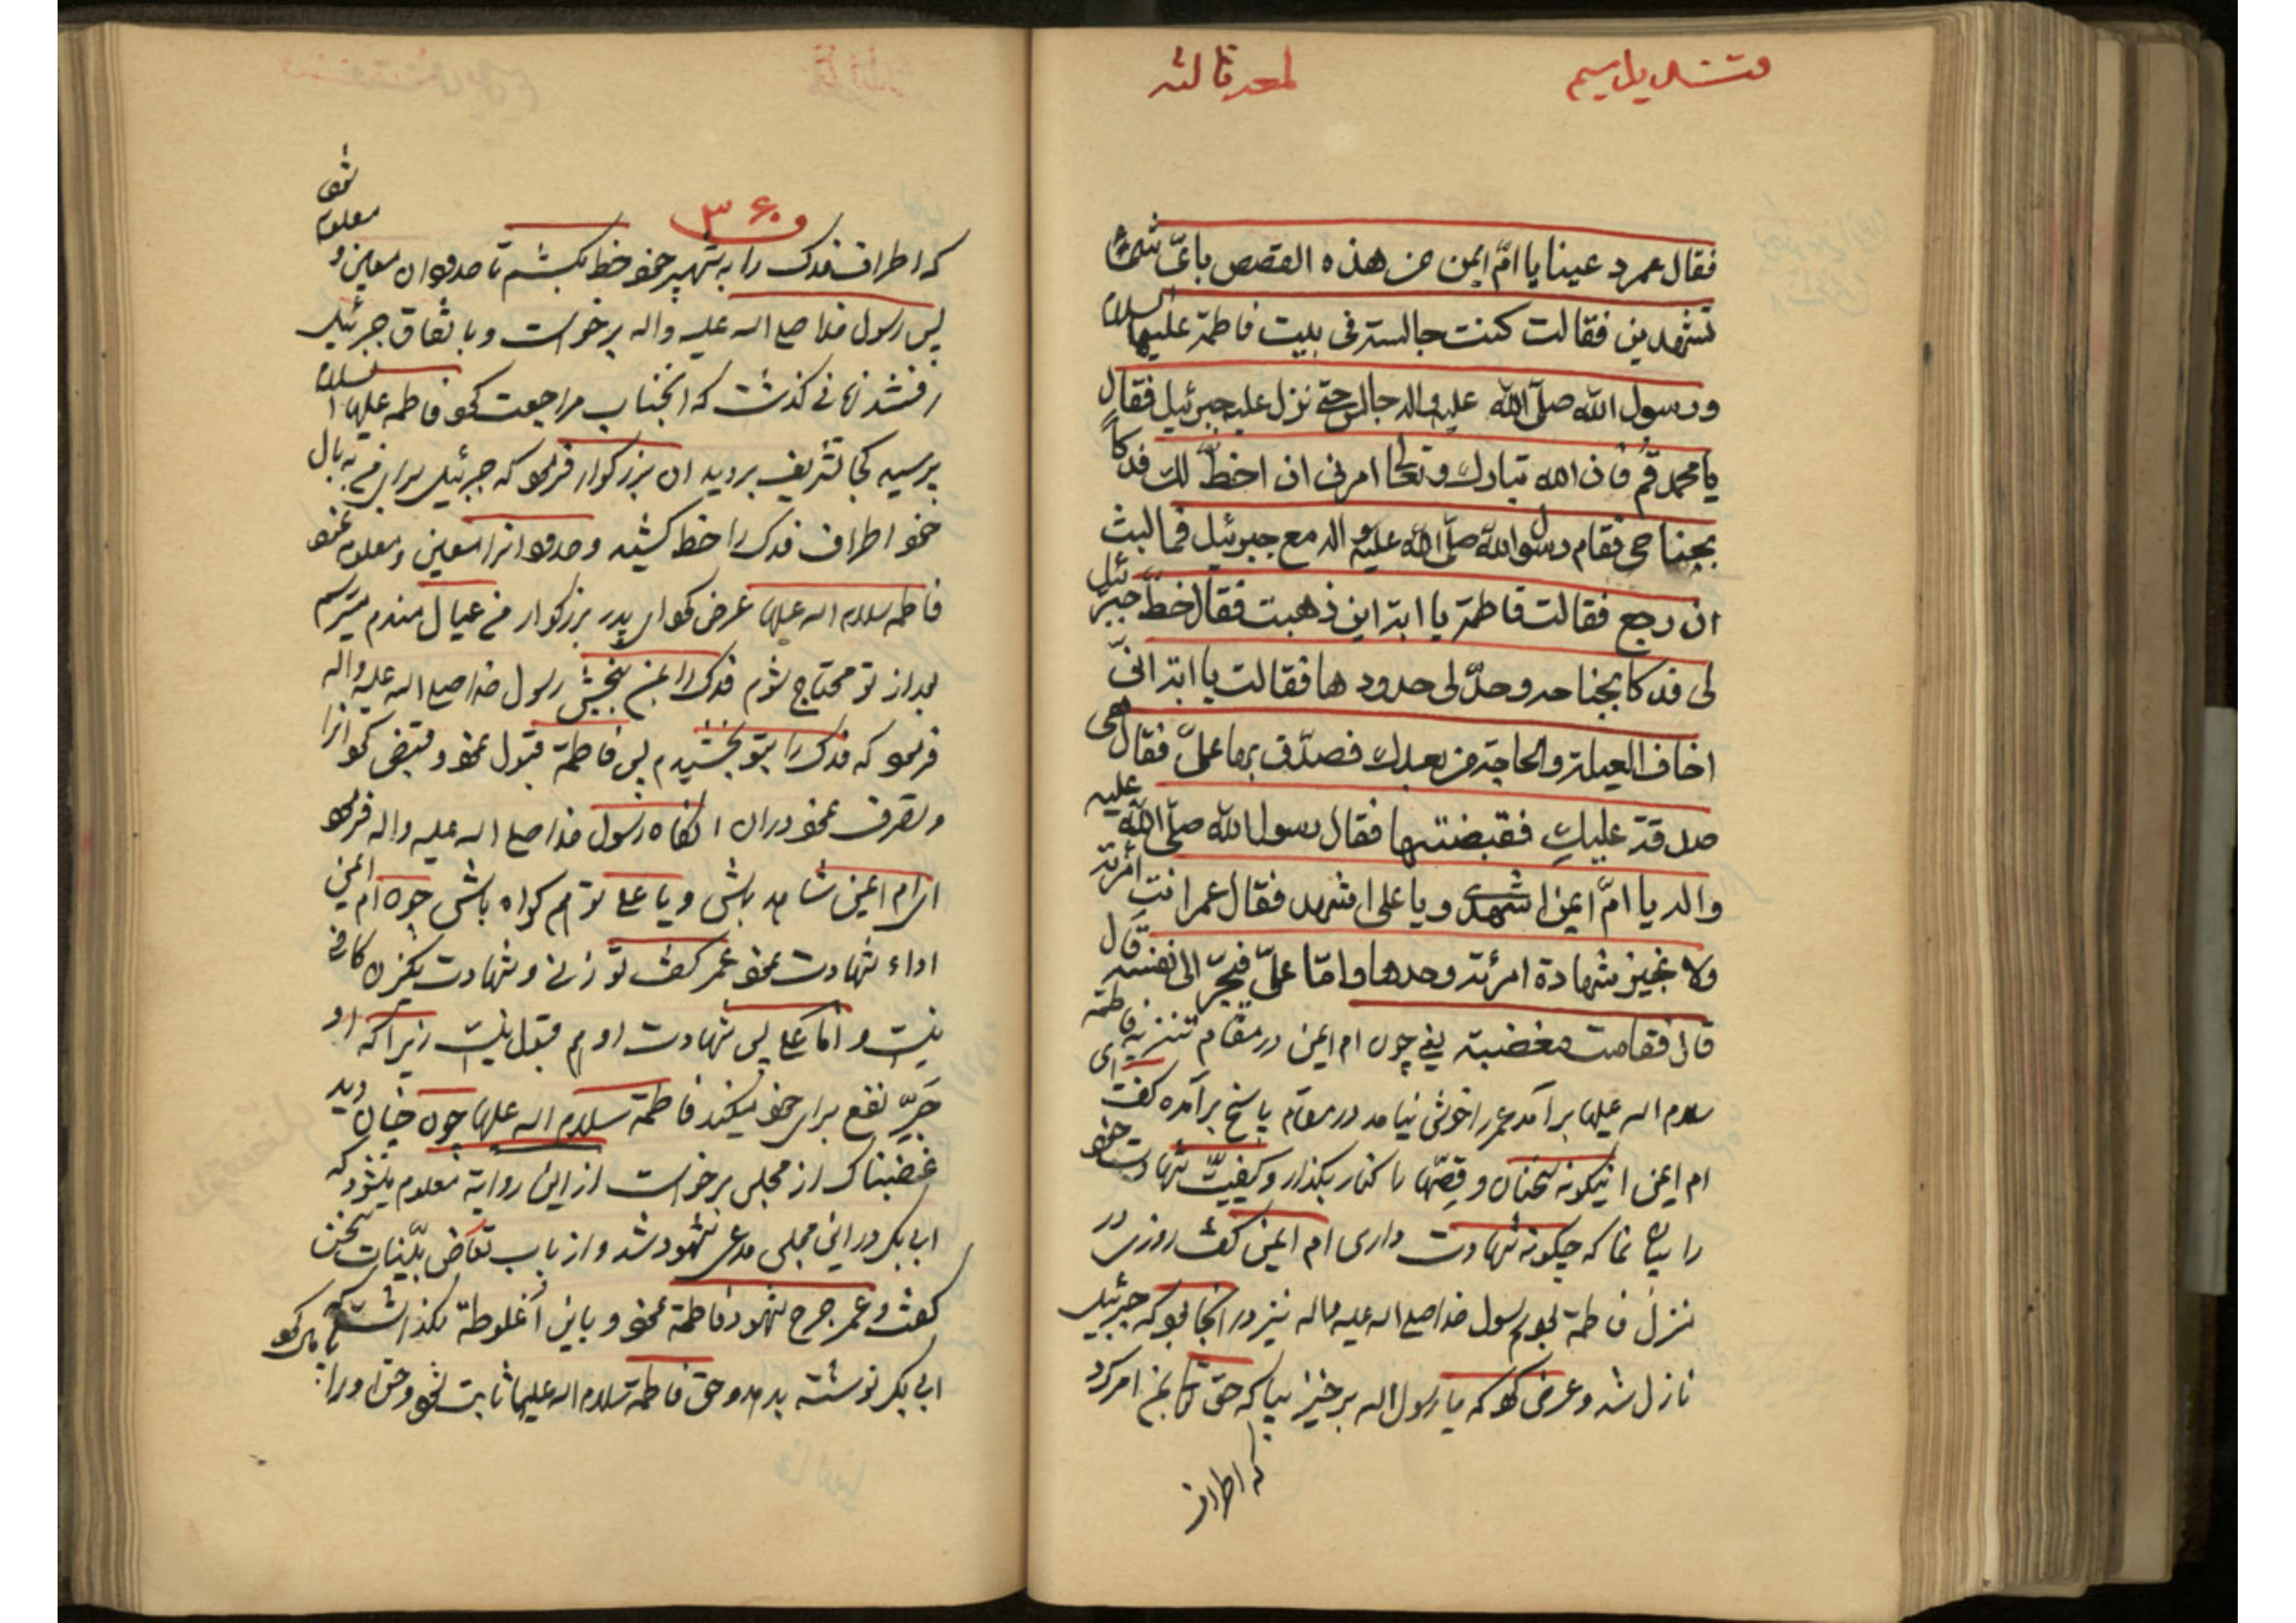 قندیل سیم
لمعه ثالثه
فقال عمر دعینا یا امّ ایمن من هذه القصص بایّ شیء
تشهدین فقالت کنت جالسة فی بیت فاطمة علیها السلام
ورسول الله صلّی الله علیه واله جالس حتّی نزل علیه جبرئیل فقال
یا محمد قُم فان الله تبارک وتعالی امرنی ان اخطّ لک فدکاً
بجناحی فقام رسول الله صلّی الله علیه واله مع جبرئیل فما لبث
ان رجع فقالت فاطمة یا ابة این ذهبت فقال خطّ جبرئیل
لی فدکا بجناحه وحدّ لی حدودها فقالت یا ابة انّی
اخاف العیلة والحاجة من بعدک فصدّق بها علیّ فقال هی
صدقة علیکِ فقبضتها فقال رسول الله صلّی الله علیه
واله یا امّ ایمن اشهدی ویا علی اشهد فقال عمر انتِ امرئة
ولا نجیز شهادة امرئة وحدها وامّا علیّ فیجرّ الی نفسه قال
قال فقامت مغضبة یعنی چون ام ایمن در مقام تنزیه فاطمة
سلام اله علیها برآمد عمر را خوش نیامد در مقام پاسخ برآمده گفت ای
ام ایمن اینگونه سخنان و قصّها را کنار بگذار و کیفیّت شهادت خود
را بیان نما که چگونه شهادت داری ام ایمن گفت روزی در
منزل فاطمة بودم رسول خدا صلی اله علیه واله نیز در آنجا بود که جبرئیل
نازل شد و عرض کرد که یا رسول اله برخیز بیا که حق تعالی بمن امر کرد
که اطراف
۳۶۰
که اطراف فدک را به شهپر خود خط بکشم تا حدود ان معین و معلوم شود
پس رسول خدا صلی اله علیه واله برخواست و باتفاق جبرئیل
رفتند زمانی نگذشت که انجناب مراجعت کرد فاطمه علیها السلام
پرسید کجا تشریف بردید ان بزرگوار فرمود که جبرئیل برای من به بال
خود اطراف فدک را خط کشید و حدود انرا معین و معلوم نمود
فاطمه سلام اله علیها عرض کرد ای پدر بزرگوار من عیال مندم میترسم
بعد از تو محتاج شوم فدک را بمن ببخش رسول خدا صلی اله علیه واله
فرمود که فدک را بتو بخشیدم پس فاطمة قبول نمود و قبض کرد انرا
و تصرف نمود دران انگاه رسول خدا صلی اله علیه واله فرمود
ای ام ایمن شاهد باش و یا علی تو هم گواه باش چون ام ایمن
اداء شهادت نمود عمر گفت تو زنی و شهادت یکزن کافی
نیست و اما علی پس شهادت او هم قبول نیست زیرا که او
جَرِّ نفع برای خود میکند فاطمة سلام اله علیها چون چنان دید
غضبناک از مجلس برخواست از این روایة معلوم میشود که
ابی بکر در این مجلس مدعی شهود شد و از باب تعارض بیّنات سخن
گفت و عمر جرح شهود فاطمة نمود و باین اُغلوطة نگذاشت که
ابی بکر نوشته بدهد و حق فاطمة سلام اله علیها ثابت شود و حق او را